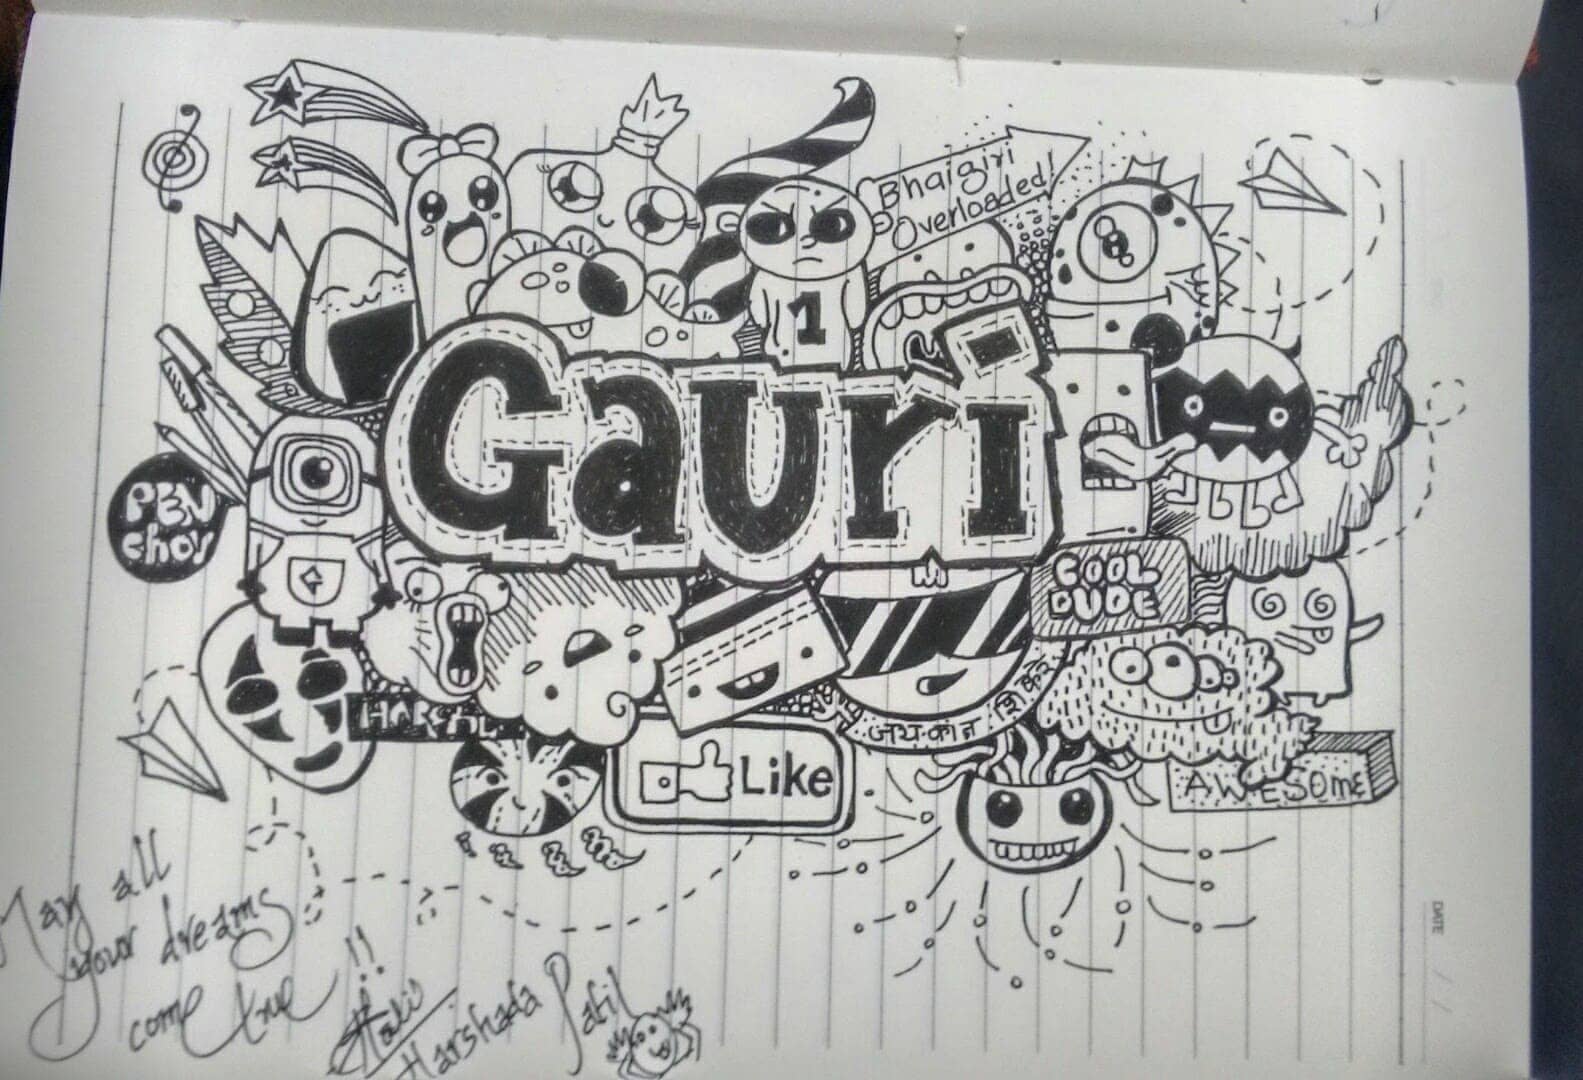 Bhaigiri
Overloaded!
1
Gauri
PEN
Chor
COOL
DUDE
Like
AWESOME
May all
your dreams
come true !!
Harshada Patil
DATE